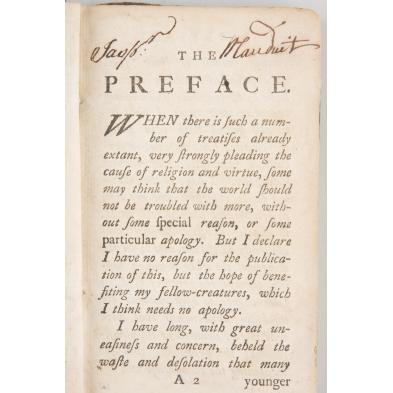 THE
PREFACE.
WHEN there is ſuch a num-
ber of treatiſes already
extant, very ſtrongly pleading the
cauſe of religion and virtue, ſome
may think that the world ſhould
not be troubled with more, with-
out ſome ſpecial reaſon, or ſome
particular apology. But I declare
I have no reaſon for the publica-
tion of this, but the hope of bene-
fiting my fellow-creatures, which
I think needs no apology.
I have long, with great un-
eaſineſs and concern, beheld the
waſte and deſolation that many
A 2 younger